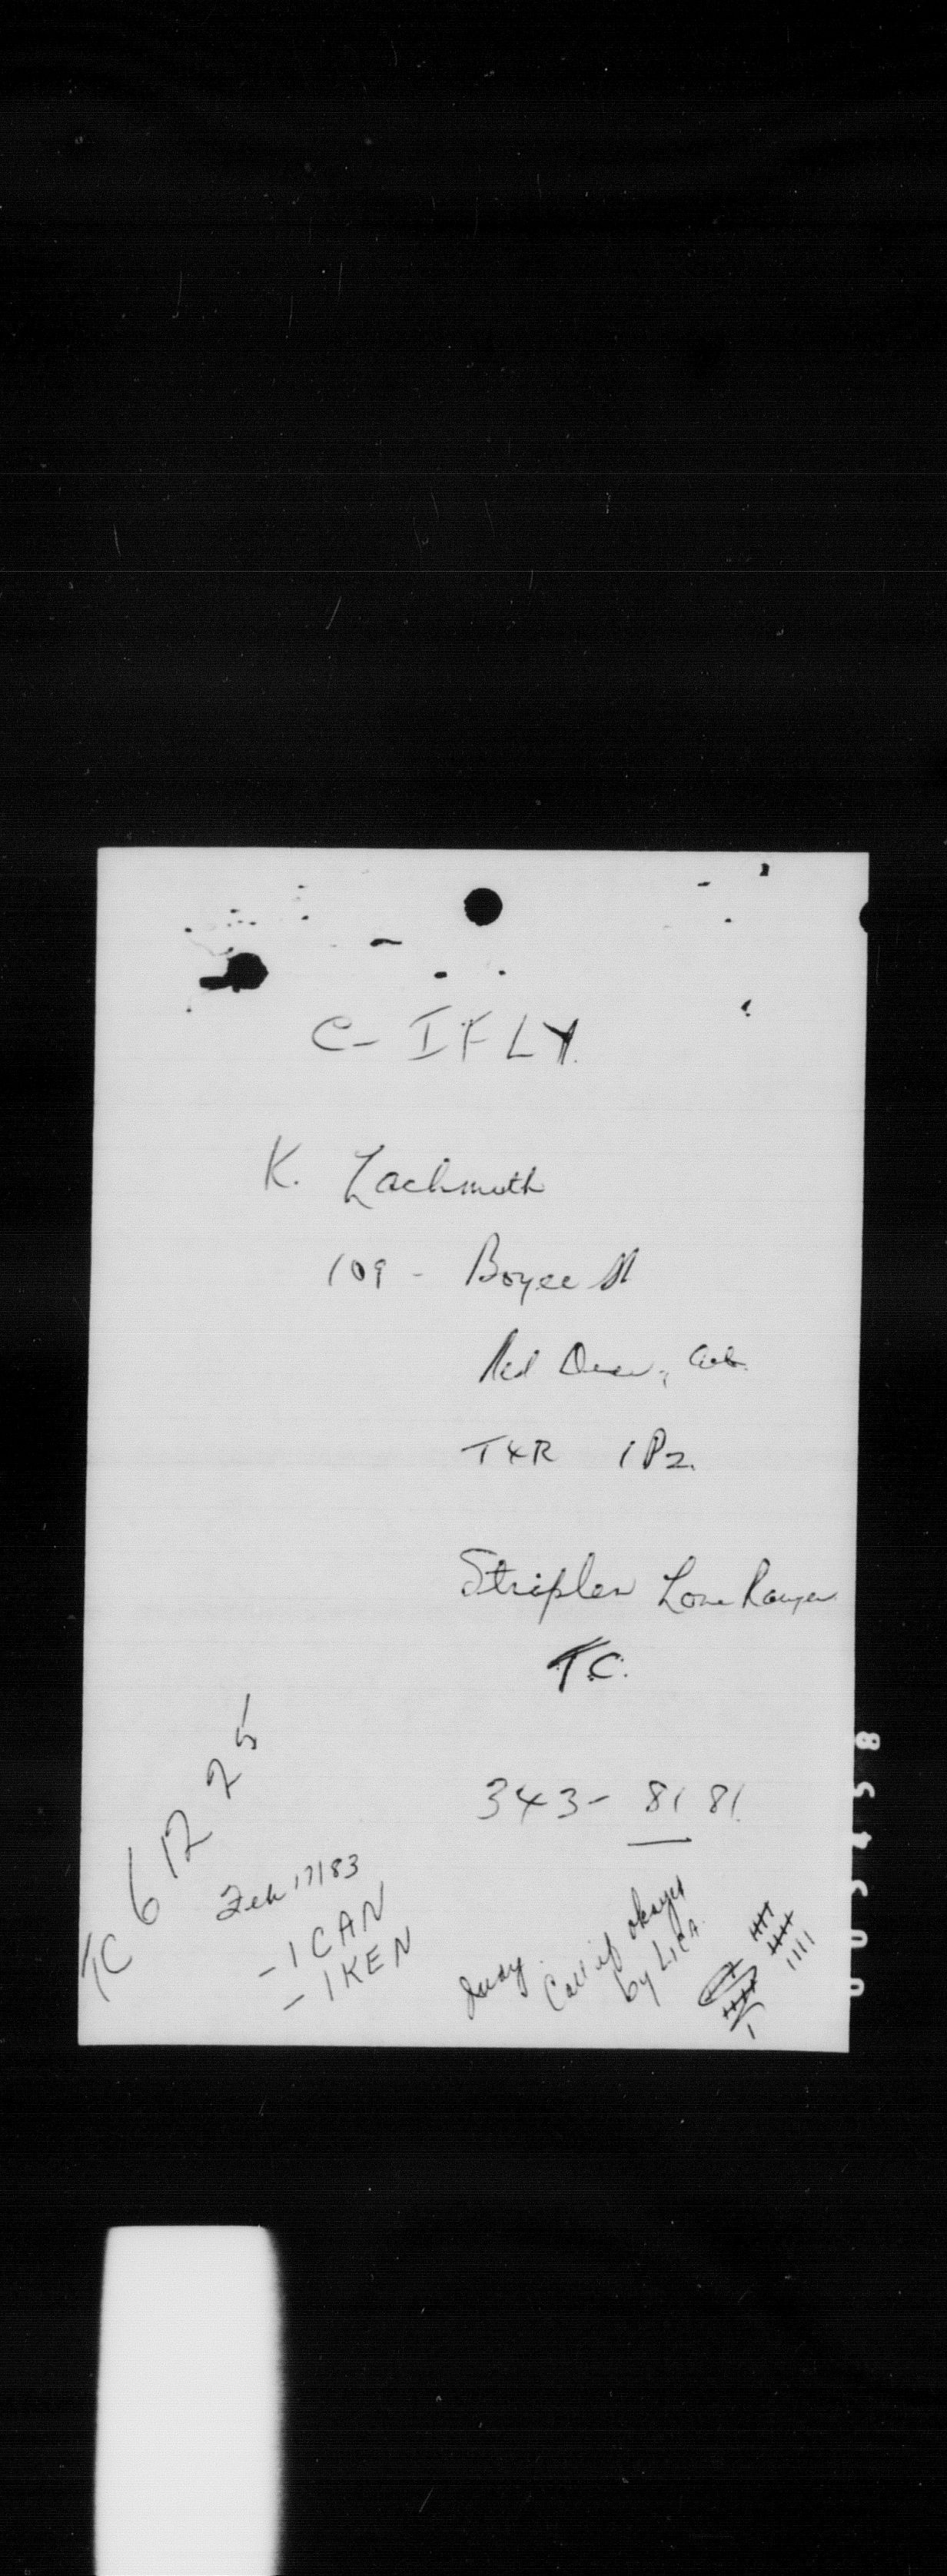 C- IFLY.
K. Lachmuth
109 - Boyce St
Red Deer, Alb.
T4R 1P2.
Striplen Lone Ranger
T.C.
343- 8181.
TC 6 12 25
Feb 17/83
- ICAN
- IKEN
Judy.
Call if okayed
by LICA.